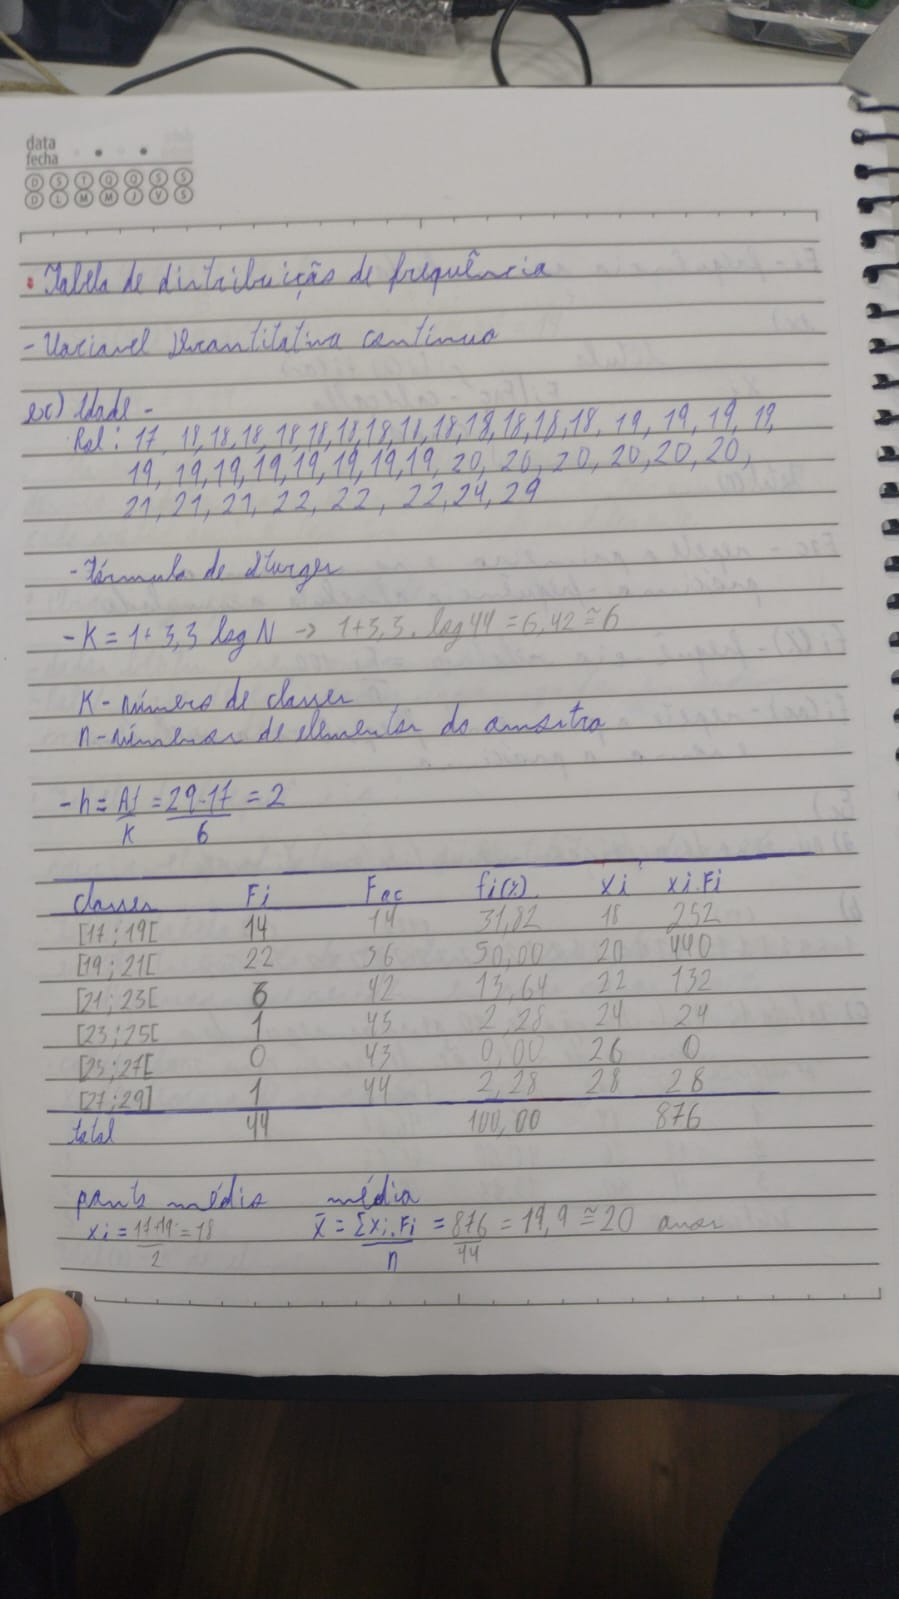 data
fecha
D S T Q Q S S
D L M M J V S
• Tabela de distribuição de frequência
- Variavel Quantitativa continua
ex) Idade -
Rol: 17, 18, 18, 18, 18, 18, 18, 18, 18, 18, 18, 18, 18, 18, 19, 19, 19, 19,
19, 19, 19, 19, 19, 19, 19, 19, 20, 20, 20, 20, 20, 20,
21, 21, 21, 22, 22, 22, 24, 29
- Fórmula de Sturges
- K = 1 + 3,3 log N -> 1+3,3 . log 44 = 6,42 ≅ 6
K - número de classes
n - números de elementos do amostra
- h = At/K = 29-17/6 = 2
classes Fi Fac fi(%) xi xi.Fi
[17 ; 19[ 14 14 31,82 18 252
[19 ; 21[ 22 36 50,00 20 440
[21 ; 23[ 6 42 13,64 22 132
[23 ; 25[ 1 43 2,28 24 24
[25 ; 27[ 0 43 0,00 26 0
[27 ; 29] 1 44 2,28 28 28
total 44 100,00 876
ponto médio média
xi = 17+19/2 = 18 x̄ = Σxi.Fi/n = 876/44 = 19,9 ≅ 20 anos